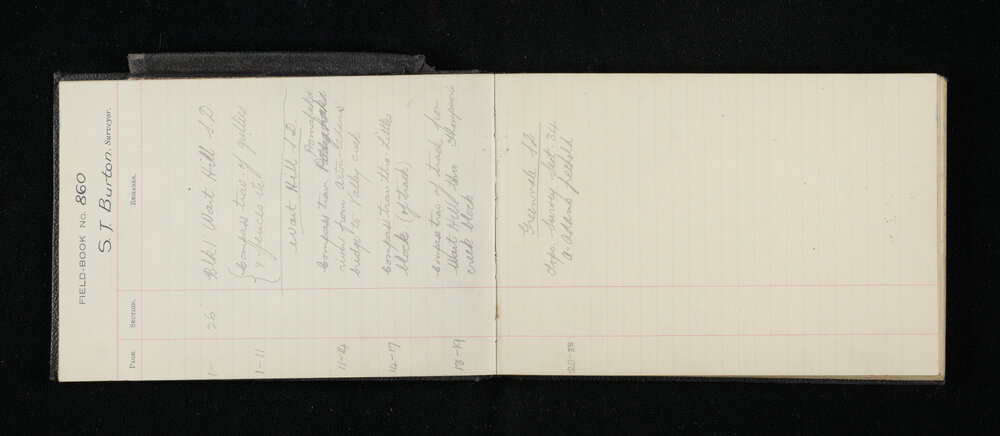 FIELD-BOOK No. 860
S. T. Burton, Surveyor.
PAGE. SECTION. REMARKS.
1- 26 Blk 1 Wart Hill S.D.
1-11 Compass trav of gullies
& fences etc
Wart Hill S.D.
Pomahaka
11-14 Compass trav
river from
bridge to creek
14-17 Compass trav thro Little
block (of track)
18-19 Compass trav of track from
Wart Hill thro Thompson's
creek block
Greenvale S.D.
20-88 Topo-survey Set. 34